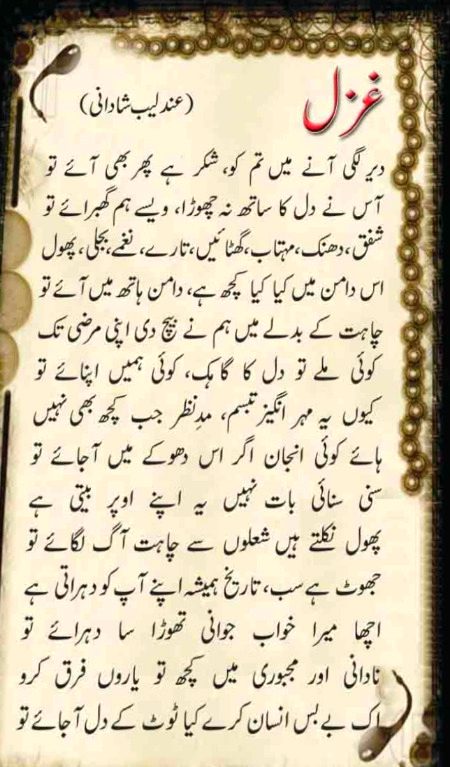 غزل
(عندلیب شادانی)
دیر لگی آنے میں تم کو، شکر ہے پھر بھی آئے تو
آس نے دل کا ساتھ نہ چھوڑا، ویسے ہم گھبرائے تو
شفق، دھنک، مہتاب، گھٹائیں، تارے، نغمے، بجلی، پھول
اس دامن میں کیا کیا کچھ ہے، دامن ہاتھ میں آئے تو
چاہت کے بدلے میں ہم نے بیچ دی اپنی مرضی تک
کوئی ملے تو دل کا گاہک، کوئی ہمیں اپنائے تو
کیوں یہ مہر انگیز تبسم، مدِنظر جب کچھ بھی نہیں
ہائے کوئی انجان اگر اس دھوکے میں آجائے تو
سنی سنائی بات نہیں یہ اپنے اوپر بیتی ہے
پھول نکلتے ہیں شعلوں سے چاہت آگ لگائے تو
جھوٹ ہے سب، تاریخ ہمیشہ اپنے آپ کو دہراتی ہے
اچھا میرا خواب جوانی تھوڑا سا دہرائے تو
نادانی اور مجبوری میں کچھ تو یاروں فرق کرو
اک بے بس انسان کرے کیا ٹوٹ کے دل آجائے تو